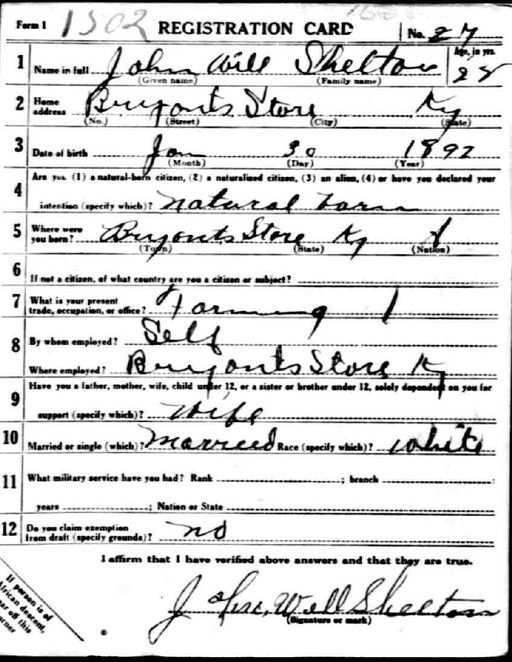 Form 1 1502 REGISTRATION CARD No. 27
1 Name in full John Will Shelton Age, in yrs.
(Given name) (Family name)
2 Home address Bryonts Store Ky
(No.) (Street) (City) (State)
3 Date of birth Jan 30 1892
(Month) (Day) (Year)
Are you (1) a natural-born citizen, (2) a naturalized citizen, (3) an alien, (4) or have you declared your
4 intention (specify which)? natural born
5 Where were you born? Bryonts Store Ky
(Town) (State) (Nation)
6 If not a citizen, of what country are you a citizen or subject?
7 What is your present trade, occupation, or office? Farming
8 By whom employed? Self
Where employed? Bryonts Store Ky
Have you a father, mother, wife, child under 12, or a sister or brother under 12, solely dependent on you for
9 support (specify which)? Wife
10 Married or single (which)? Married Race (specify which)? White
11 What military service have you had? Rank ; branch
years ; Nation or State
12 Do you claim exemption from draft (specify grounds)? no
I affirm that I have verified above answers and that they are true.
John Will Shelton
(Signature or mark)
If person is of
African descent,
tear off this
corner